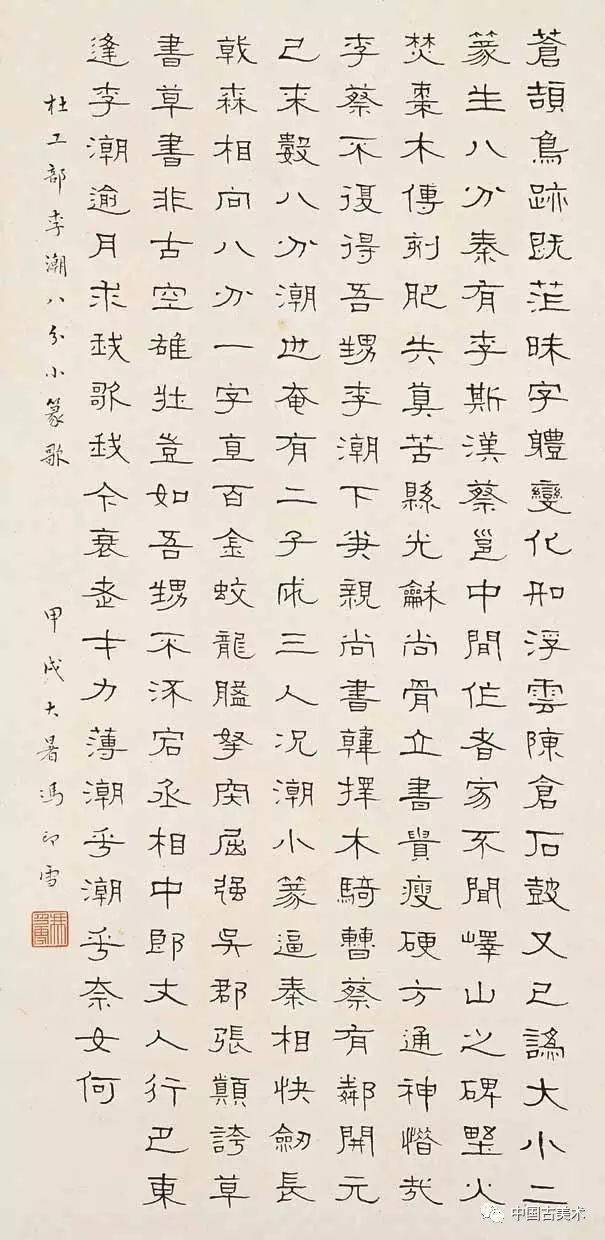 蒼頡鳥跡既茫昧字體變化如浮雲陳倉石鼓又已譌大小二
篆生八分秦有李斯漢蔡邕中閒作者寂不聞嶧山之碑野火
焚棗木傳刻肥失真苦縣光龢尚骨立書貴瘦硬方通神惜哉
李蔡不復得吾甥李潮下筆親尚書韓擇木騎曹蔡有鄰開元
已來數八分潮也奄有二子成三人況潮小篆逼秦相快劒長
戟森相向八分一字直百金蛟龍盤拏肉屈强吳郡張顛誇草
書草書非古空雄壯豈如吾甥不流宕丞相中郎丈人行巴東
逢李潮逾月求我歌我今衰老才力薄潮乎潮乎奈女何
杜工部李潮八分小篆歌 甲戌大暑馮印雪
中国古美术